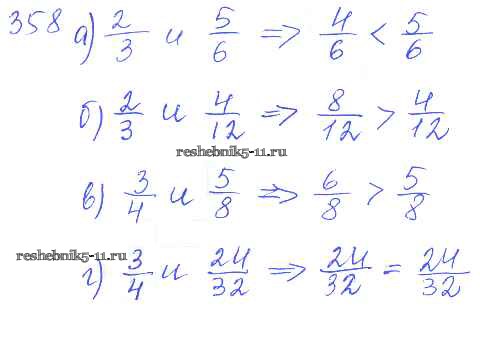 358 а) 2/3 и 5/6 => 4/6 < 5/6
б) 2/3 и 4/12 => 8/12 > 4/12
reshebnik5-11.ru
в) 3/4 и 5/8 => 6/8 > 5/8
reshebnik5-11.ru
г) 3/4 и 24/32 => 24/32 = 24/32